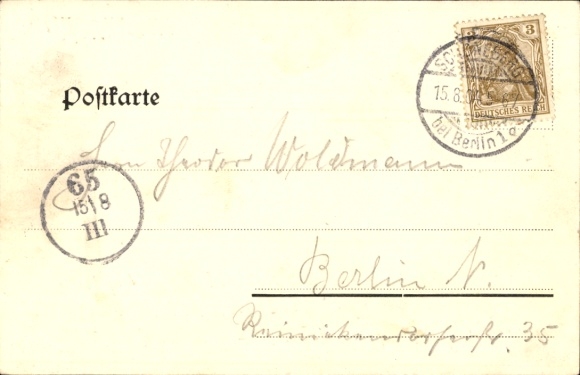 3
SCHÖNEBERG
15.8.
DEUTSCHES REICH
bei Berlin 1 a
Poſtkarte
Herrn Theodor Woldmann
65
15|8
III
Berlin N.
Reinickendorferstr. 35